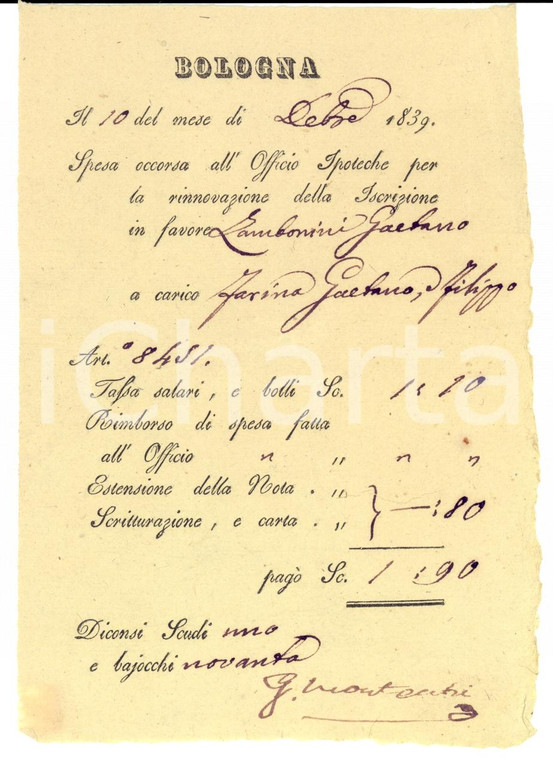 BOLOGNA
Il 10 del mese di Debre 1839.
Spesa occorsa all' Officio Ipoteche per
la rinnovazione della Iscrizione
in favore Zambonini Gaetano
a carico Farina Gaetano, e Filippo
iCharta
Art.º 8451.
Tassa salari, e bolli Sc. 1: 10
Rimborso di spesa fatta
all' Officio " " " "
Estensione della Nota . "
Scritturazione, e carta . " } —: 80
pagò Sc. 1 : 90
Diconsi Scudi uno
e bajocchi novanta
G.